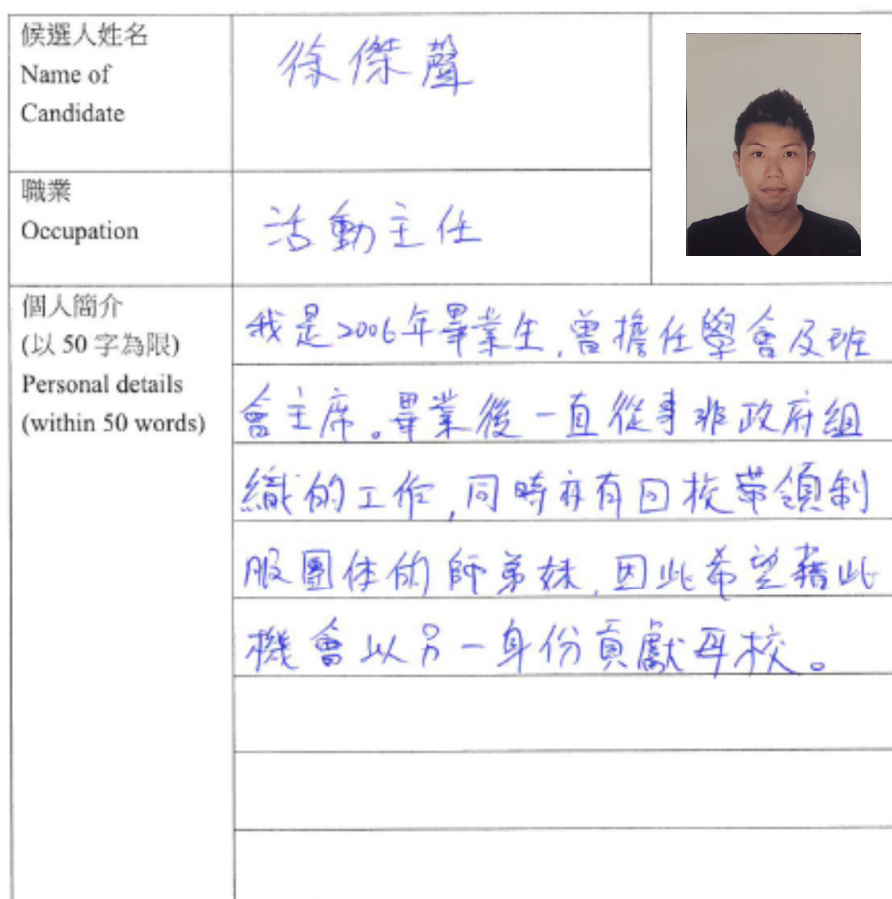 候選人姓名
Name of
Candidate
徐傑聲
職業
Occupation
活動主任
個人簡介
(以 50 字為限)
Personal details
(within 50 words)
我是2006年畢業生,曾擔任學會及班
會主席。畢業後一直從事非政府組
織的工作,同時亦有回校帶領制
服團体的師弟妹,因此希望藉此
機會以另一身份貢獻母校。